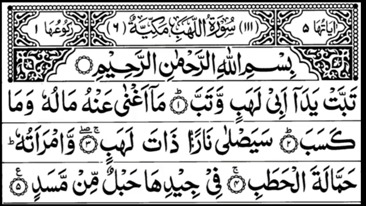 اٰيَاتُهَا ٥ (١١١) سُوْرَةُ اللَّهَبِ مَكِّيَّةٌ (٦) رُكُوْعُهَا ١
بِسْمِ اللّٰهِ الرَّحْمٰنِ الرَّحِيْمِ
تَبَّتْ يَدَآ اَبِيْ لَهَبٍ وَّتَبَّ ۝١ مَآ اَغْنٰى عَنْهُ مَالُهٗ وَمَا
كَسَبَ ۝٢ سَيَصْلٰى نَارًا ذَاتَ لَهَبٍ ۝٣ وَّامْرَاَتُهٗ ط
حَمَّالَةَ الْحَطَبِ ۝٤ فِيْ جِيْدِهَا حَبْلٌ مِّنْ مَّسَدٍ ۝٥